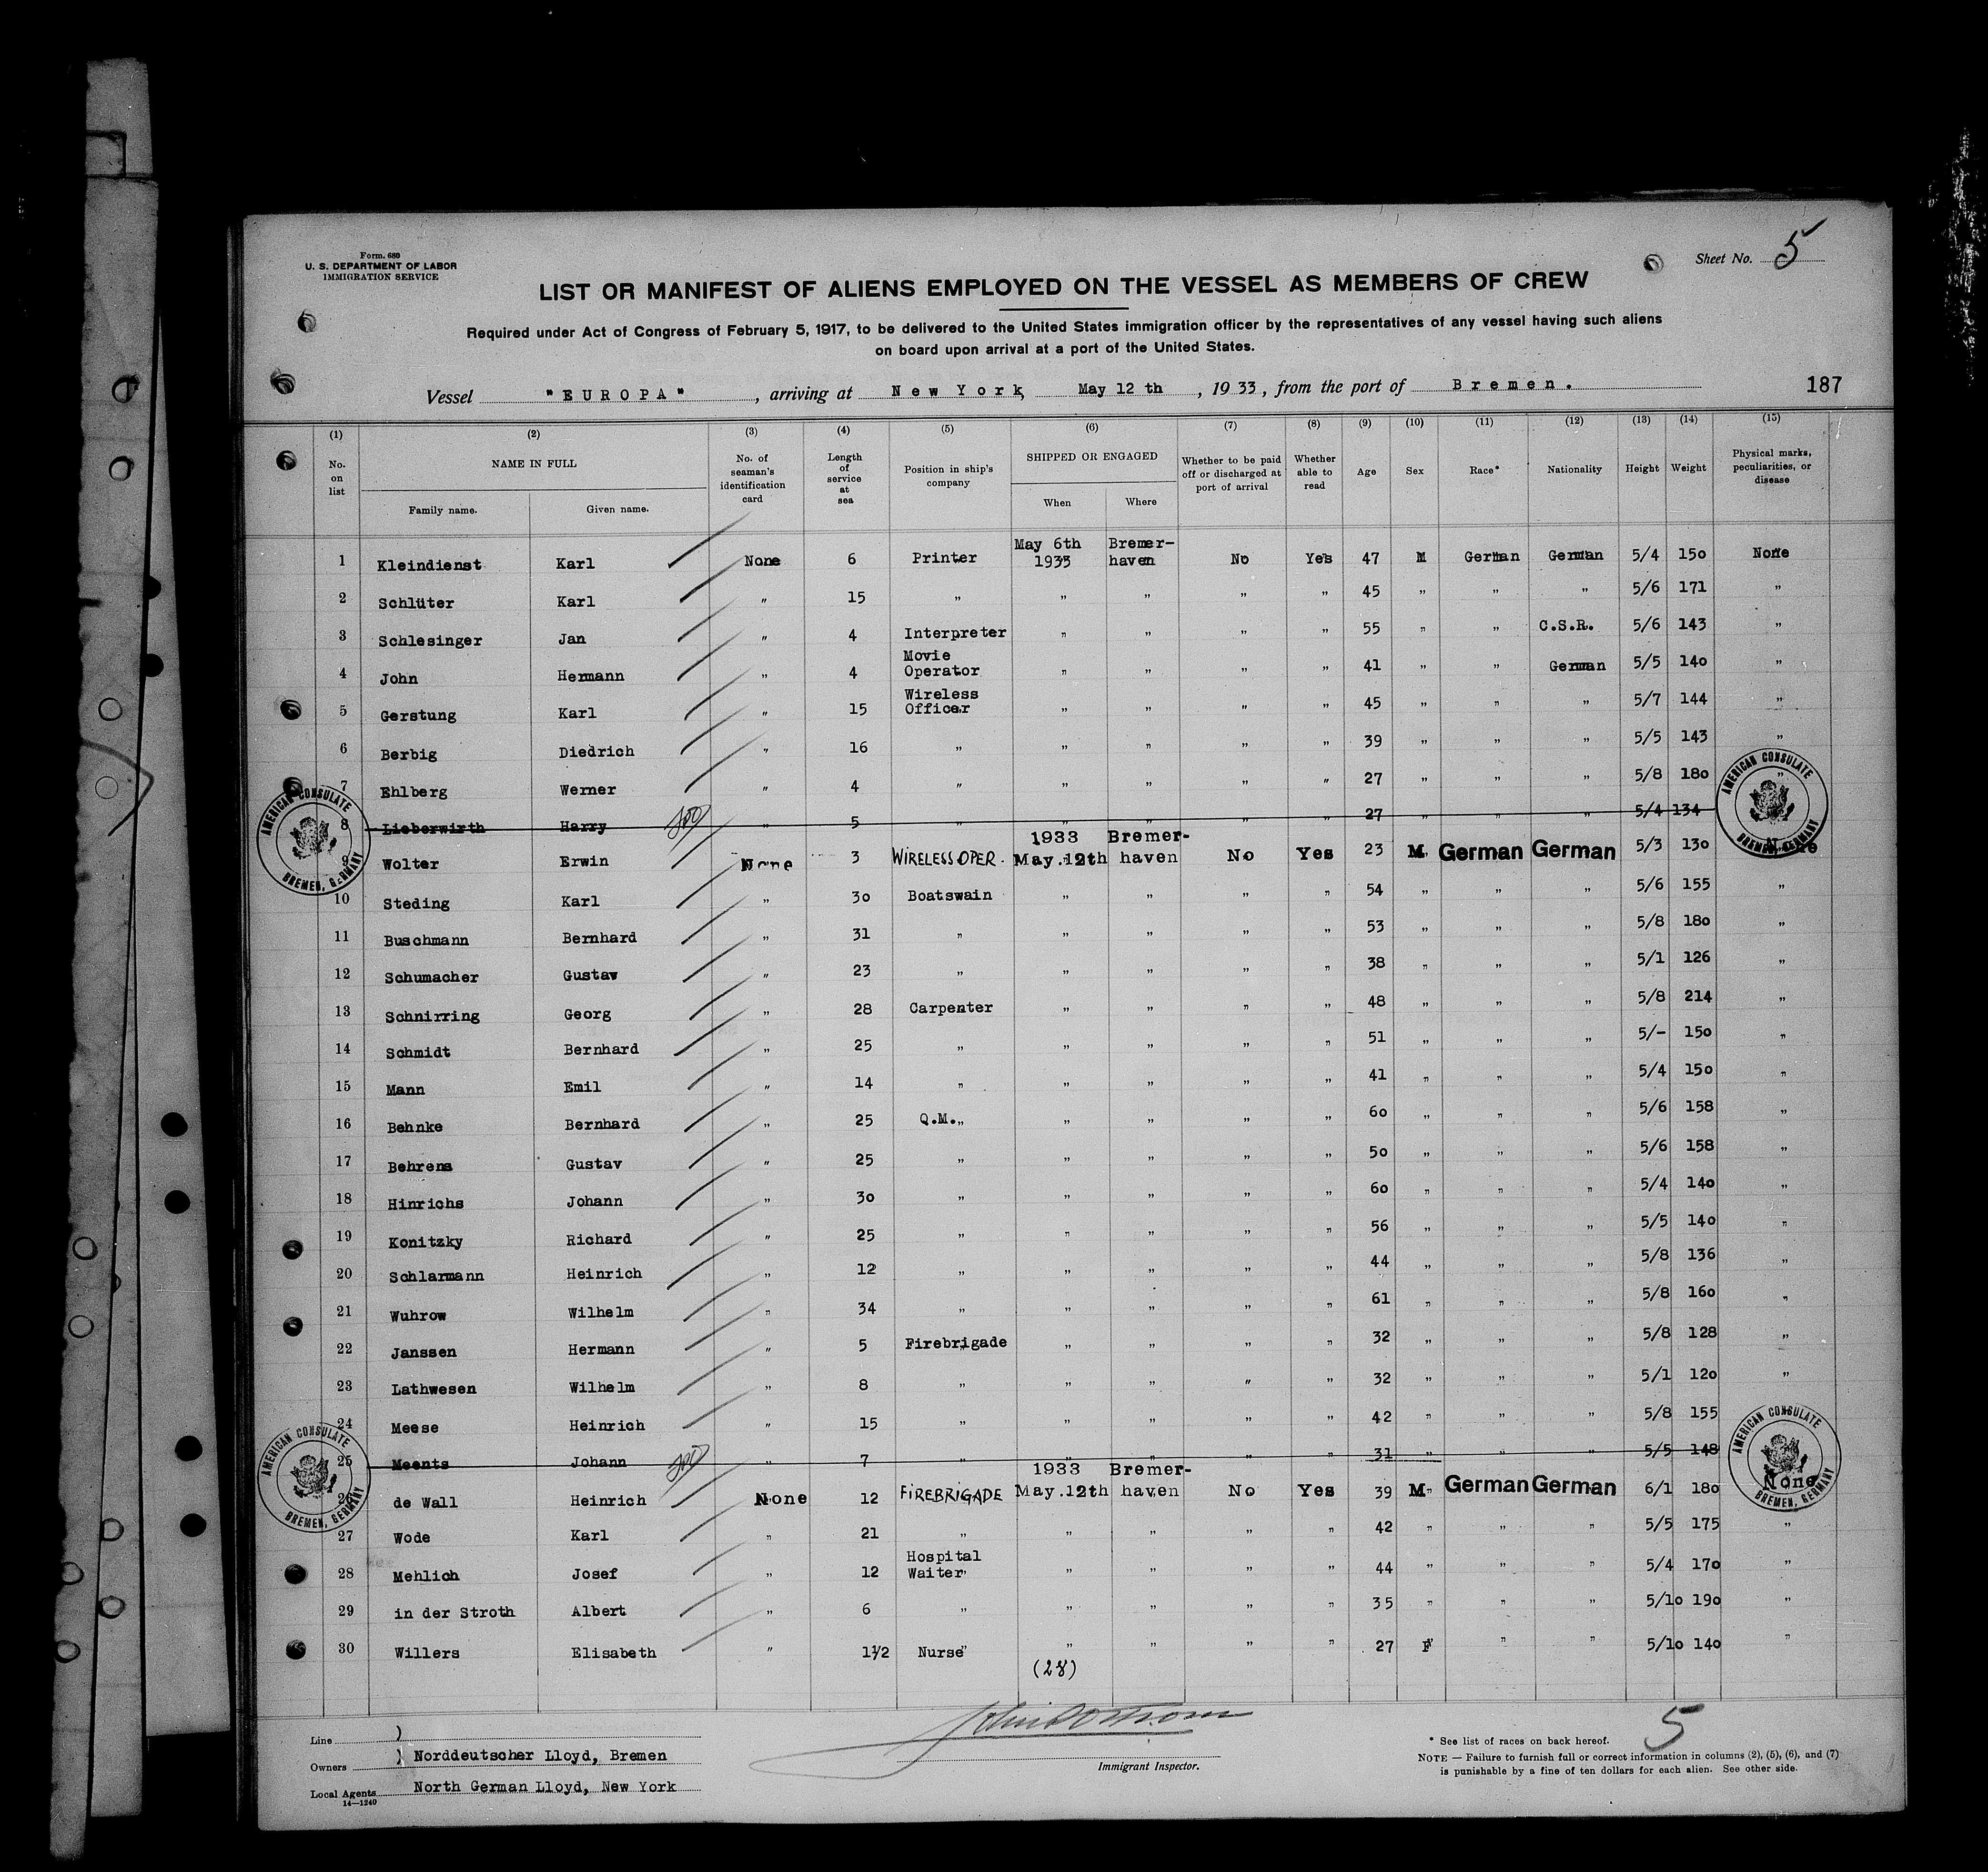 Form. 680
U. S. DEPARTMENT OF LABOR
IMMIGRATION SERVICE
Sheet No. 5
LIST OR MANIFEST OF ALIENS EMPLOYED ON THE VESSEL AS MEMBERS OF CREW
Required under Act of Congress of February 5, 1917, to be delivered to the United States immigration officer by the representatives of any vessel having such aliens
on board upon arrival at a port of the United States.
Vessel "EUROPA", arriving at New York, May 12 th, 1933, from the port of Bremen. 187
(1) (2) (3) (4) (5) (6) (7) (8) (9) (10) (11) (12) (13) (14) (15)
No. on list
NAME IN FULL
Family name. Given name.
No. of seaman's identification card
Length of service at sea
Position in ship's company
SHIPPED OR ENGAGED
When Where
Whether to be paid off or discharged at port of arrival
Whether able to read
Age
Sex
Race*
Nationality
Height
Weight
Physical marks, peculiarities, or disease
1 Kleindienst Karl None 6 Printer May 6th 1933 Bremer-haven No Yes 47 M German German 5/4 150 None
2 Schlüter Karl " 15 " " " " " 45 " " " 5/6 171 "
3 Schlesinger Jan " 4 Interpreter " " " " 55 " " C.S.R. 5/6 143 "
4 John Hermann " 4 Movie Operator " " " " 41 " " German 5/5 140 "
5 Gerstung Karl " 15 Wireless Officer " " " " 45 " " " 5/7 144 "
6 Berbig Diedrich " 16 " " " " " 39 " " " 5/5 143 "
7 Ehlberg Werner " 4 " " " " " 27 " " " 5/8 180 "
8 Lieberwirth Harry " 5 " " " " " 27 " " " 5/4 134
9 Wolter Erwin None 3 WIRELESS OPER. 1933 May.12th Bremer-haven No Yes 23 M German German 5/3 130 None
10 Steding Karl " 30 Boatswain " " " " 54 " " " 5/6 155 "
11 Buschmann Bernhard " 31 " " " " " 53 " " " 5/8 180 "
12 Schumacher Gustav " 23 " " " " " 38 " " " 5/1 126 "
13 Schnirring Georg " 28 Carpenter " " " " 48 " " " 5/8 214 "
14 Schmidt Bernhard " 25 " " " " " 51 " " " 5/- 150 "
15 Mann Emil " 14 " " " " " 41 " " " 5/4 150 "
16 Behnke Bernhard " 25 Q.M. " " " " 60 " " " 5/6 158 "
17 Behrens Gustav " 25 " " " " " 50 " " " 5/6 158 "
18 Hinrichs Johann " 30 " " " " " 60 " " " 5/4 140 "
19 Konitzky Richard " 25 " " " " " 56 " " " 5/5 140 "
20 Schlarmann Heinrich " 12 " " " " " 44 " " " 5/8 136 "
21 Wuhrow Wilhelm " 34 " " " " " 61 " " " 5/8 160 "
22 Janssen Hermann " 5 Firebrigade " " " " 32 " " " 5/8 128 "
23 Lathwesen Wilhelm " 8 " " " " " 32 " " " 5/1 120 "
24 Meese Heinrich " 15 " " " " " 42 " " " 5/8 155 "
25 Meents Johann " 7 " " " " " 31 " " " 5/5 148
26 de Wall Heinrich None 12 FIREBRIGADE 1933 May.12th Bremer-haven No Yes 39 M German German 6/1 180 None
27 Wode Karl " 21 " " " " " 42 " " " 5/5 175 "
28 Mehlich Josef " 12 Hospital Waiter " " " " 44 " " " 5/4 170 "
29 in der Stroth Albert " 6 " " " " " 35 " " " 5/10 190 "
30 Willers Elisabeth " 1 1/2 Nurse " " " " 27 F " " 5/10 140 "
(28)
AMERICAN CONSULATE BREMEN, GERMANY
AMERICAN CONSULATE BREMEN, GERMANY
AMERICAN CONSULATE BREMEN, GERMANY
AMERICAN CONSULATE BREMEN, GERMANY
Line
Owners Norddeutscher Lloyd, Bremen
Local Agents North German Lloyd, New York
14—1240
Immigrant Inspector.
5
* See list of races on back hereof.
NOTE — Failure to furnish full or correct information in columns (2), (5), (6), and (7)
is punishable by a fine of ten dollars for each alien. See other side.